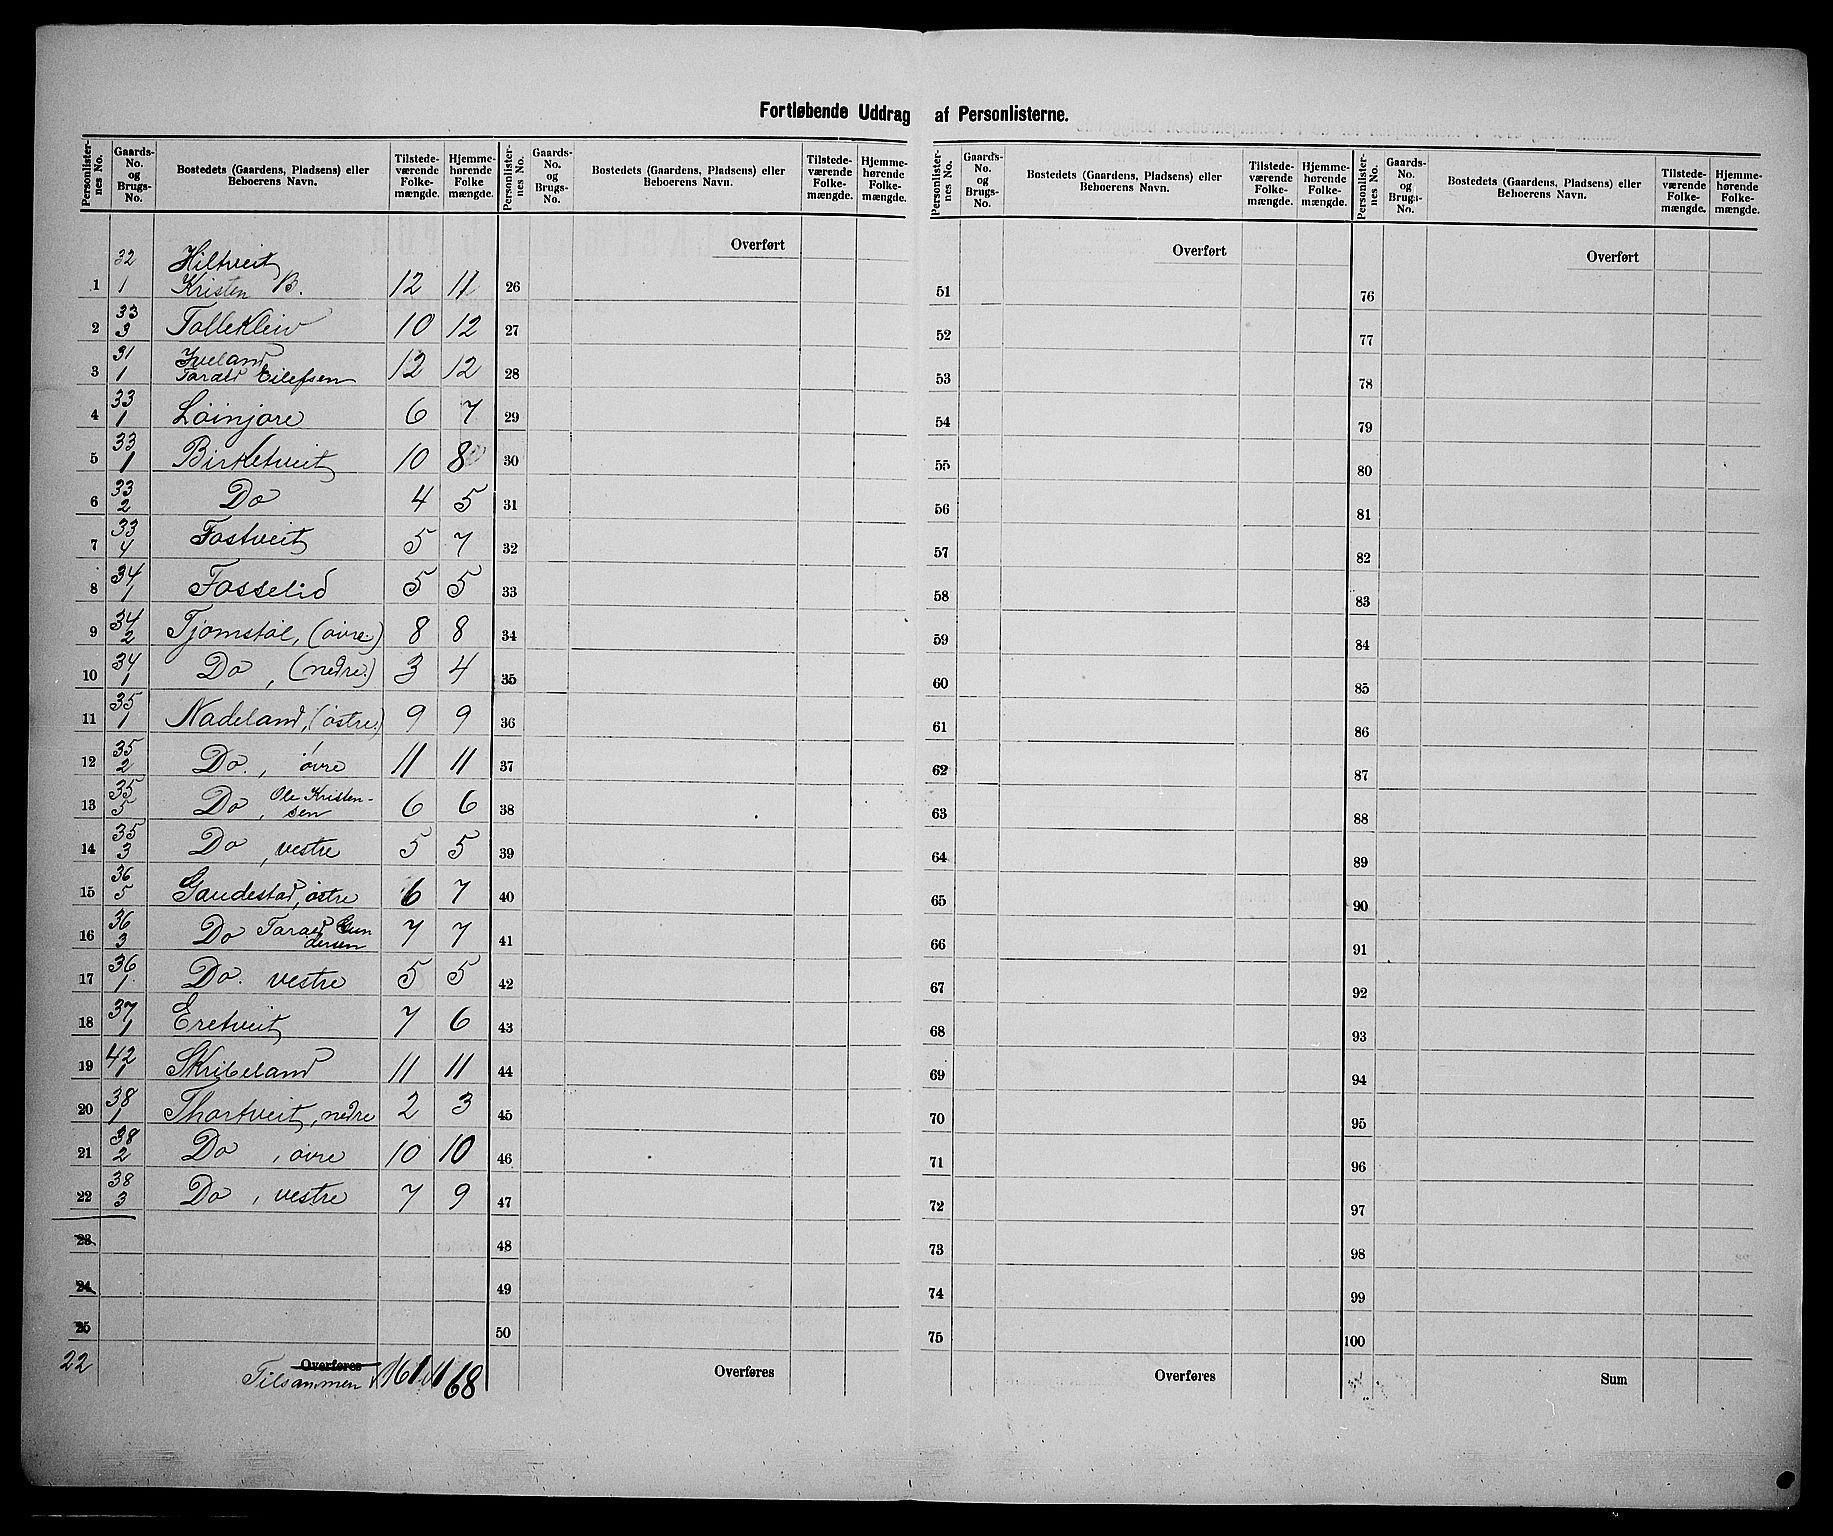 Fortløbende Uddrag af Personlisterne.
Personlister-nes No. | Gaards-No. og Brugs-No. | Bostedets (Gaardens, Pladsens) eller Beboerens Navn. | Tilstede-værende Folke-mængde. | Hjemme-hørende Folke mængde.
1 | 32 1 | Hiltveit Kristen B. | 12 | 11
2 | 33 3 | TolleKleiv | 10 | 12
3 | 31 1 | Iveland Tarald Eilefsen | 12 | 12
4 | 33 1 | Løinjore | 6 | 7
5 | 33 1 | Birketveit | 10 | 8
6 | 33 2 | Do | 4 | 5
7 | 33 4 | Fostveit | 5 | 7
8 | 34 1 | Fosselid | 5 | 5
9 | 34 2 | Tjomstøl, (øvre.) | 8 | 8
10 | 34 1 | Do, (nedre.) | 3 | 4
11 | 35 1 | Nadeland, (østre.) | 9 | 9
12 | 35 2 | Do., øvre | 11 | 11
13 | 35 5 | Do, Ole Kristen-sen | 6 | 6
14 | 35 3 | Do, vestre | 5 | 5
15 | 36 5 | Gaudestad, østre | 6 | 7
16 | 36 3 | Do Tarald Gundersen | 7 | 7
17 | 36 1 | Do. vestre | 5 | 5
18 | 37 1 | Eretveit | 7 | 6
19 | 42 1 | Skribeland | 11 | 11
20 | 38 1 | Thortveit, nedre | 2 | 3
21 | 38 2 | Do, øvre | 10 | 10
22 | 38 3 | Do, vestre | 7 | 9
23
24
25
22 | Overføres Tilsammen | 161 | 168
Personlister-nes No. | Gaards-No. og Brugs-No. | Bostedets (Gaardens, Pladsens) eller Beboerens Navn. | Tilstede-værende Folke-mængde. | Hjemme-hørende Folke-mængde.
Overført
26
27
28
29
30
31
32
33
34
35
36
37
38
39
40
41
42
43
44
45
46
47
48
49
50
Overføres
Personlister-nes No. | Gaards-No. og Brugs-No. | Bostedets (Gaardens, Pladsens) eller Beboerens Navn. | Tilstede-værende Folke-mængde. | Hjemme-hørende Folke-mængde.
Overført
51
52
53
54
55
56
57
58
59
60
61
62
63
64
65
66
67
68
69
70
71
72
73
74
75
Overføres
Personlister-nes No. | Gaards-No. og Brugs-No. | Bostedets (Gaardens, Pladsens) eller Beboerens Navn. | Tilstede-værende Folke-mængde. | Hjemme-hørende Folke-mængde.
Overført
76
77
78
79
80
81
82
83
84
85
86
87
88
89
90
91
92
93
94
95
96
97
98
99
100
Sum